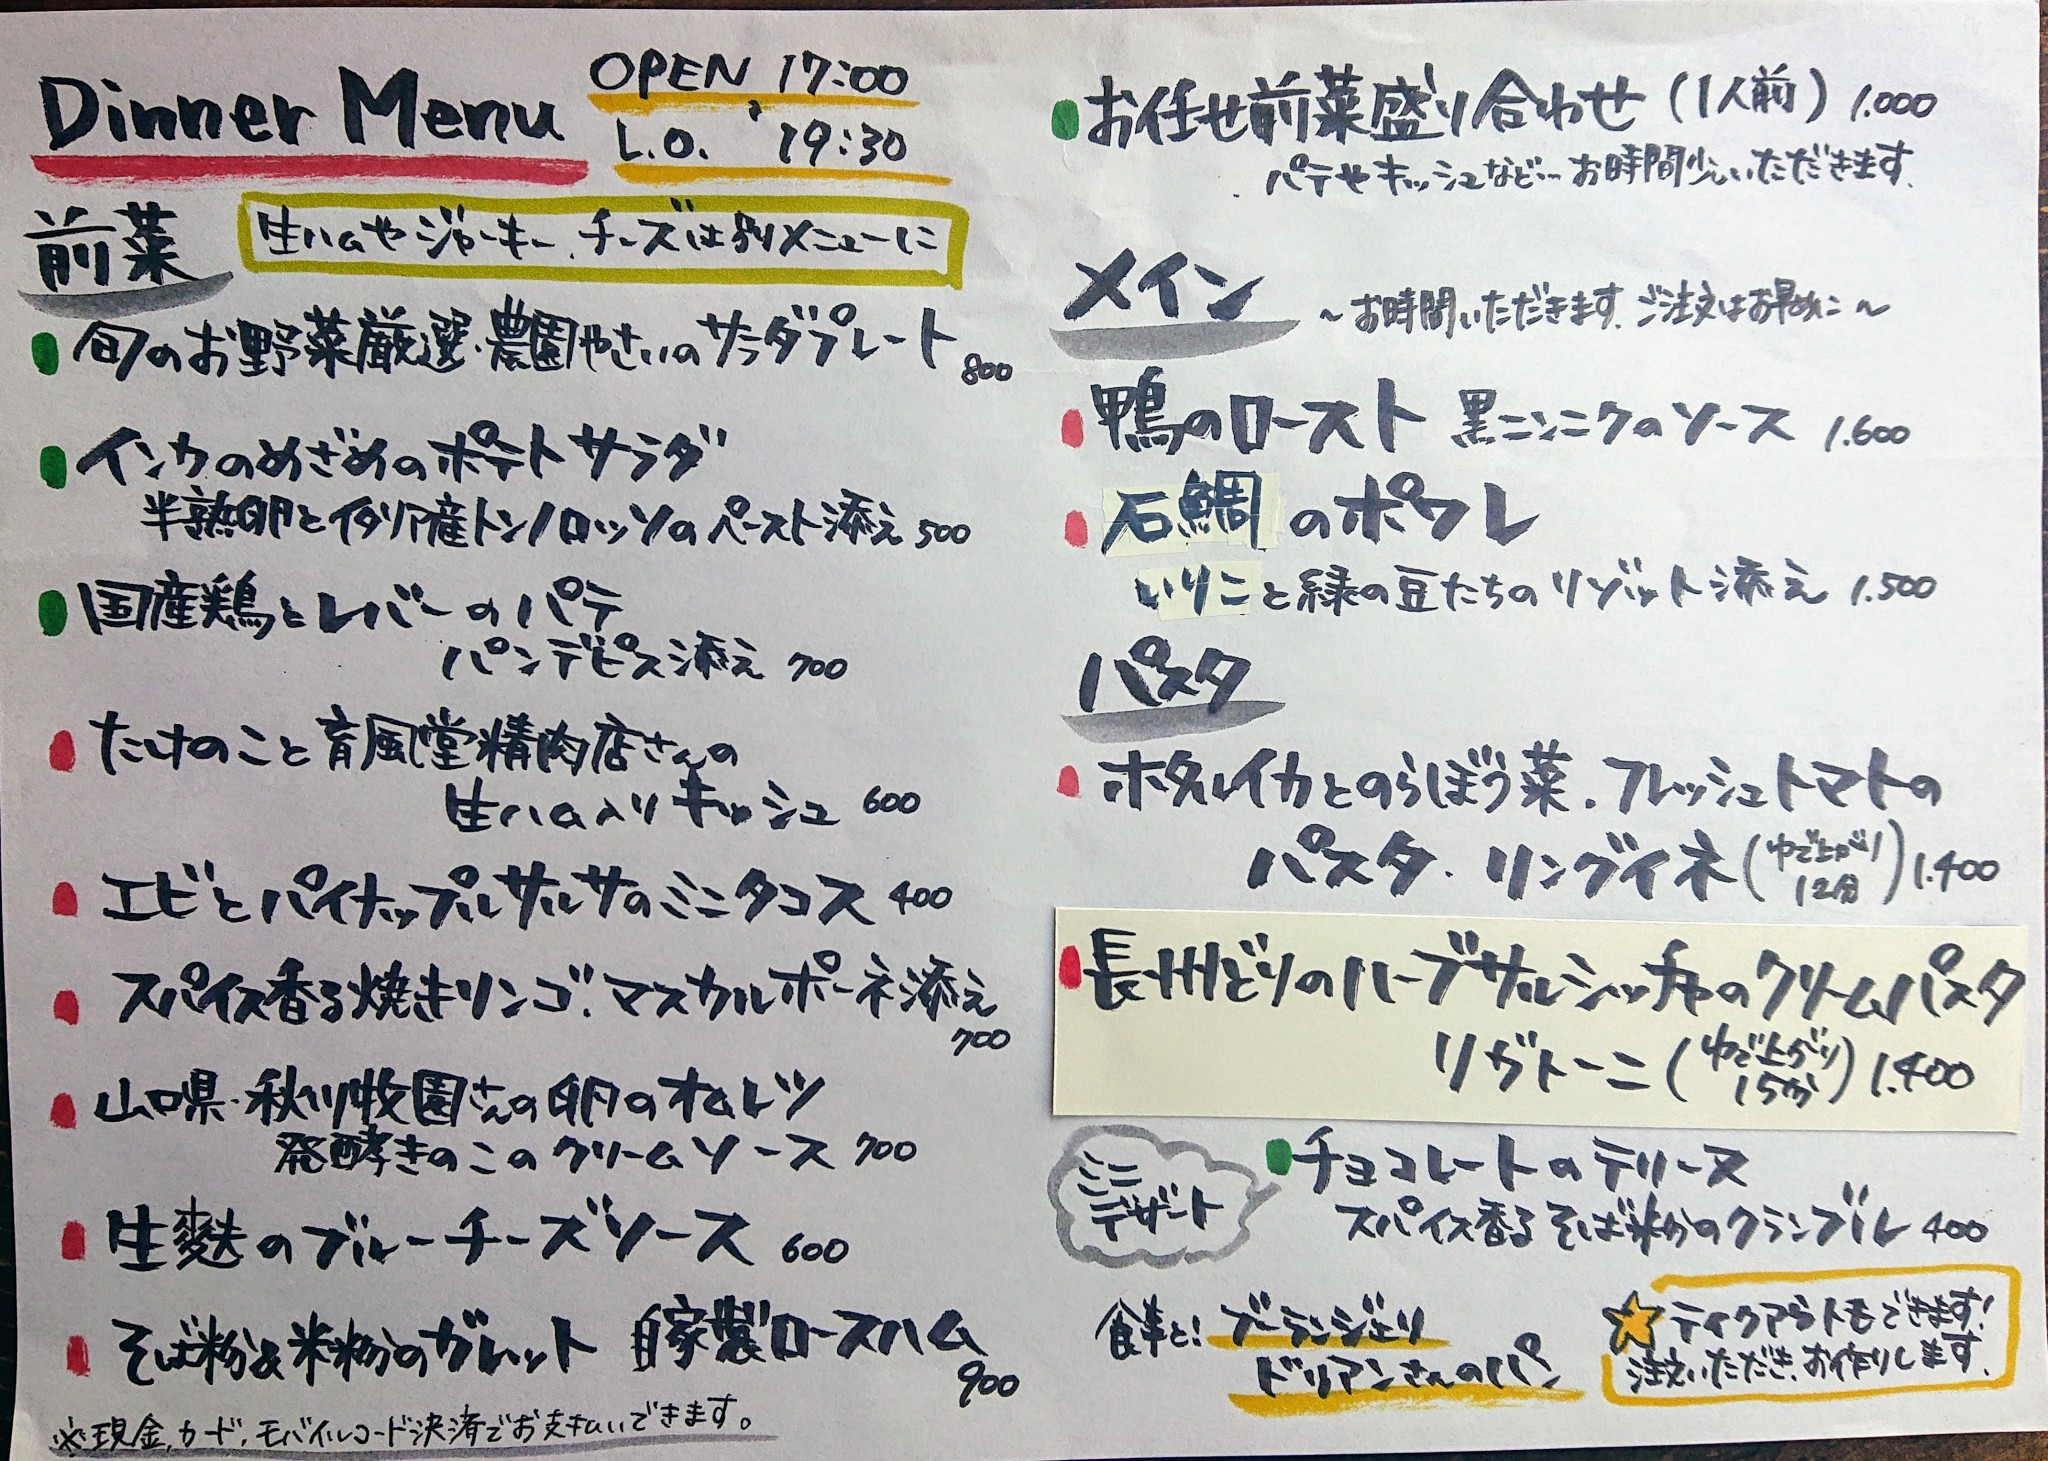 Dinner Menu
OPEN 17:00
L.O. 19:30
前菜
生ハムやジャーキー、チーズは別メニューに
旬のお野菜厳選・農園やさいのサラダプレート 800
インカのめざめのポテトサラダ
半熟卵とイタリア産トンノロッソのペースト添え 500
国産鶏とレバーのパテ
パンデピス添え 700
たけのこと育風堂精肉店さんの
生ハム入りキッシュ 600
エビとパイナップルサルサのミニタコス 400
スパイス香る焼きリンゴ、マスカルポーネ添え
700
山口県・秋川牧園さんの卵のオムレツ
発酵きのこのクリームソース 700
生麩のブルーチーズソース 600
そば粉&米粉のガレット 自家製ロースハム
900
※現金、カード、モバイルコード決済でお支払いできます。
お任せ前菜盛り合わせ(1人前) 1.000
パテやキッシュなど… お時間少しいただきます。
メイン
〜お時間いただきます。ご注文はお早めに〜
鴨のロースト 黒ニンニクのソース 1.600
石鯛のポワレ
いりこと緑の豆たちのリゾット添え 1.500
パスタ
ホタルイカとのらぼう菜、フレッシュトマトの
パスタ・リングイネ(ゆで上がり12分) 1.400
長州どりのハーブサルシッチャのクリームパスタ
リガトーニ(ゆで上がり15分) 1.400
ミニデザート
チョコレートのテリーヌ
スパイス香るそば米粉のクランブル 400
食事と! ブーランジェリ
ドリアンさんのパン
テイクアウトもできます!
注文いただき、お作りします。